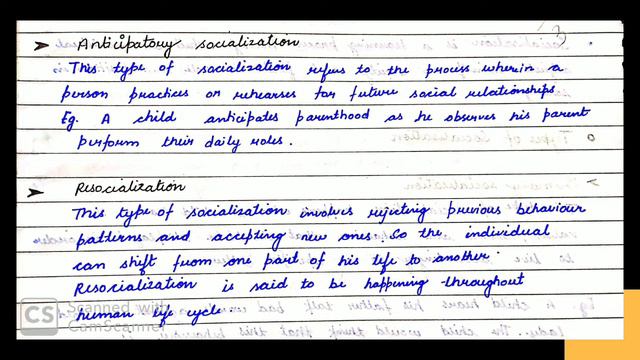 3
➤ Anticipatory socialization
This type of socialization refers to the process wherein a
person practices or rehearses for future social relationships.
Eg. A child anticipates parenthood as he observes his parent
perform their daily roles.
➤ Resocialization
This type of socialization involves rejecting previous behaviour
patterns and accepting new ones. So the individual
can shift from one part of his life to another.
Resocialization is said to be happening throughout
human life cycle.
CS Scanned with
CamScanner